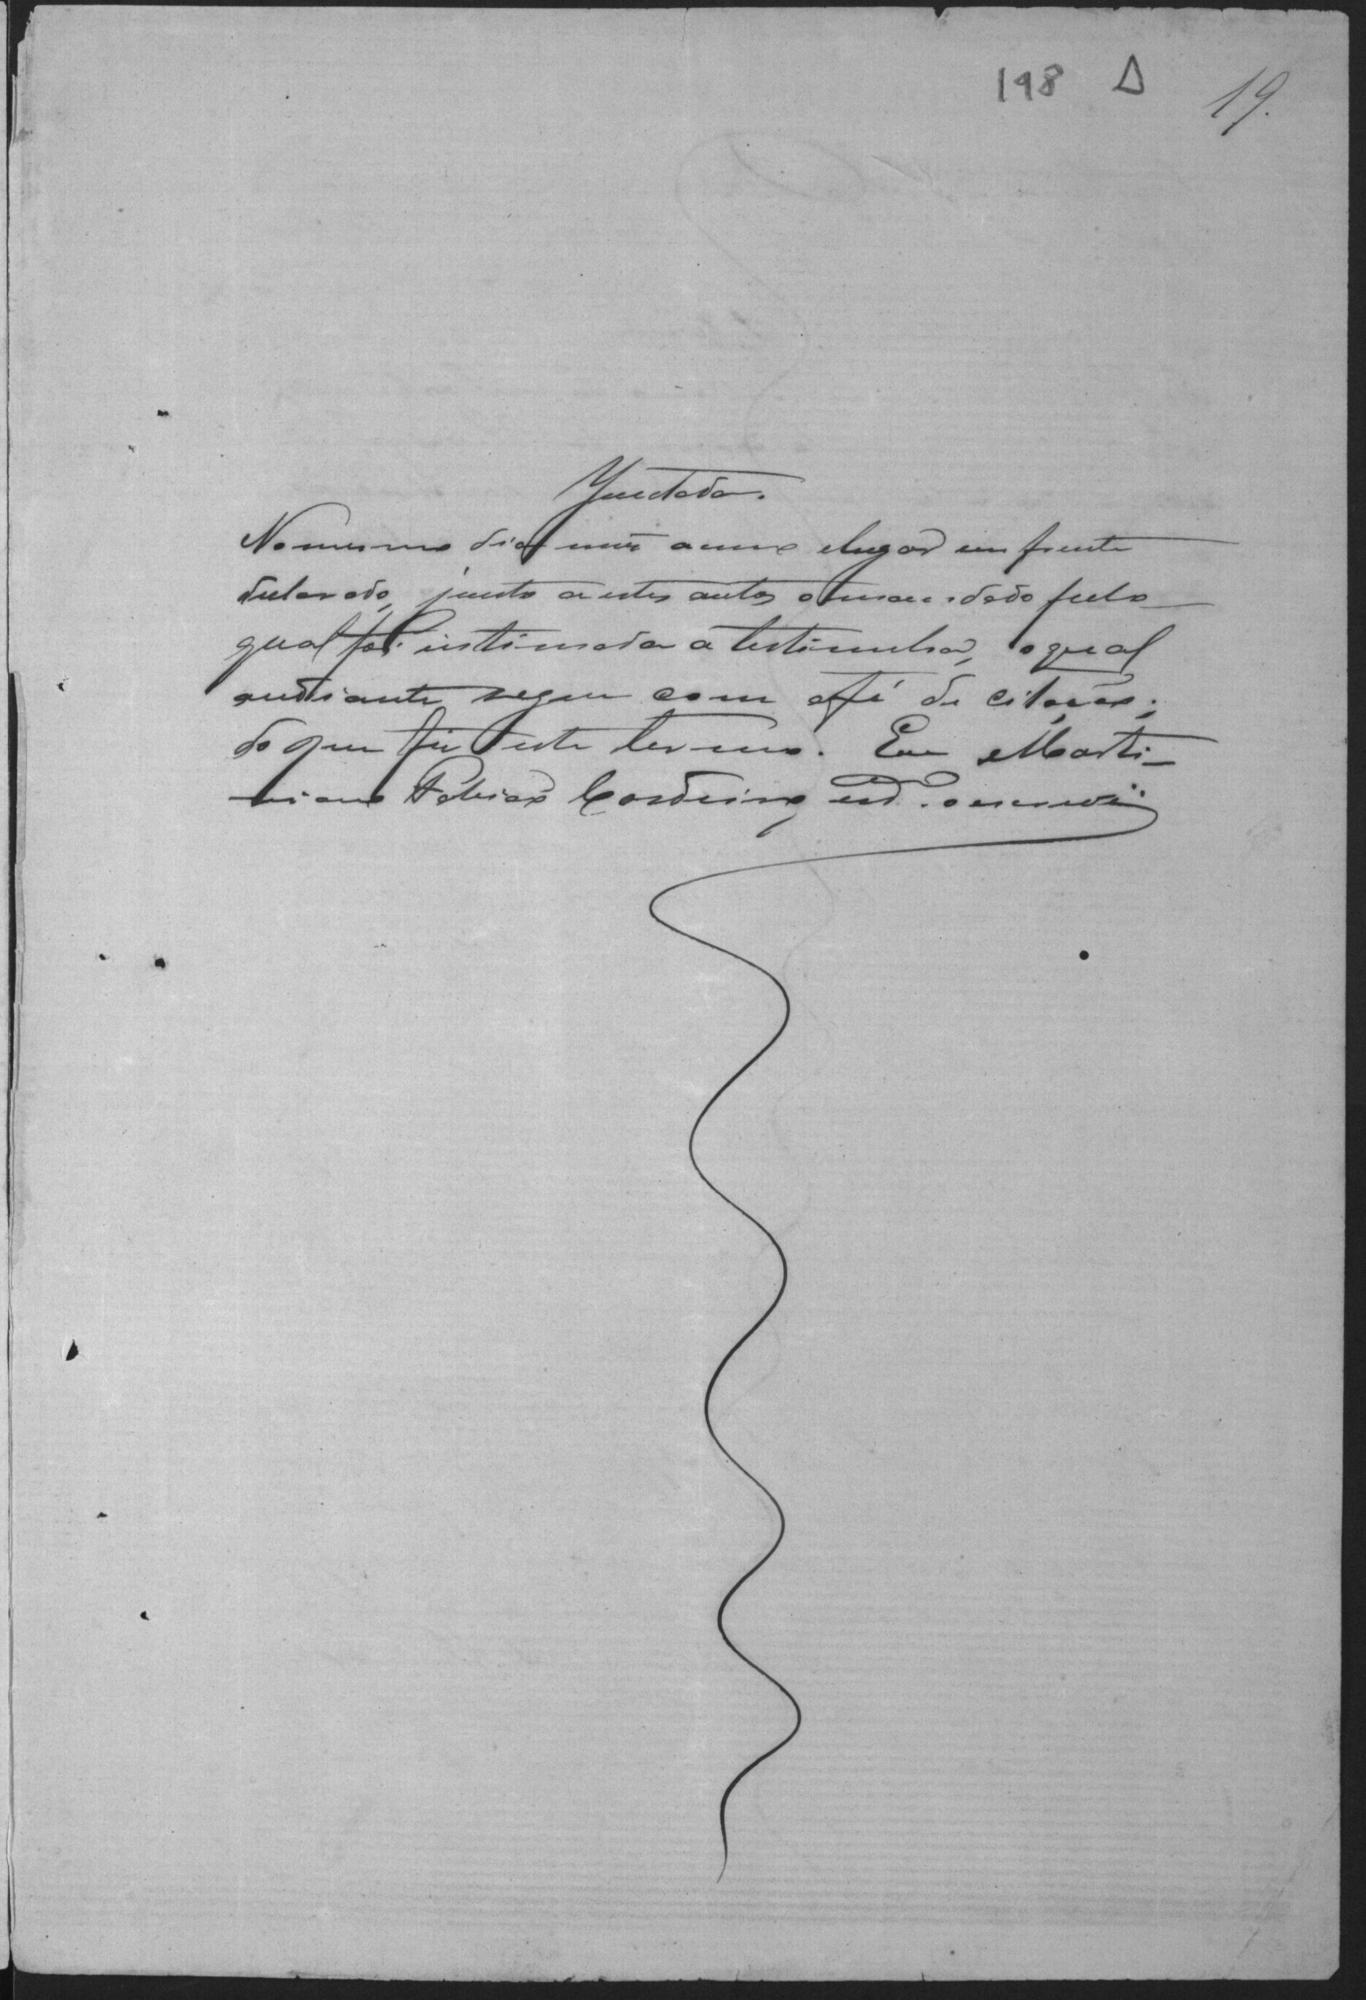 198 Δ 19.
Juntada.
No mesmo dia mez anno e lugar em frente
declarado, junto a estes autos o mandado pelo
qual foi intimada a testimunha, o qual
adiante segue com a fé de citação;
do que fiz este termo. Eu Marti-
niano Cordeiro, o escrevi